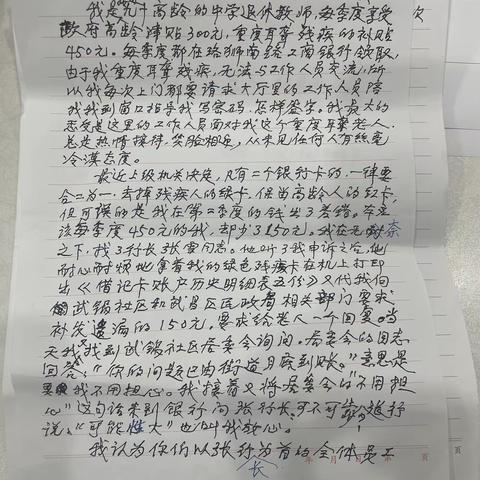 我是九十高龄的中学退休教师,每季度享受
次
政府高龄津贴300元,重度耳聋残疾的补贴
450元。每季度都在珞狮南路工商银行领取,
由于我重度耳聋残疾,无法与工作人员交流,所
以我每次上门都要请求大厅里的工作人员陪
我找到窗口指导我写密码,怎样签字。我最大的
感受是这里的工作人员面对我这个重度耳聋老人,
总是热情接待,笑脸相迎,从未见任何人有丝毫
冷漠态度。
最近上级机关决定,凡有二个银行卡的,一律要
合二为一,去掉残疾人的绿卡,保留高龄人的红卡,
但可误的是我在第二季度的钱出了差错。本应
该每季度450元的我,却少了150元。我在无奈
之下,找了行长张雯同志。他听了我申诉之后,他
耐心耐烦地拿着我的绿色残疾卡在机上打印
出《借记卡账户历史明细表五份》又代我向
街武锅社区和武昌区民政局相关部门要求
补发遗漏的150元,要求给老人一个回复。当
天我找到武锅社区居委会询问。居委会的同志
回答:“你的问题已由街道月底到账。”意思是
要我不用担心。我接着又将居委会的“不用担
心”这句话来到银行问张行长,可不可能进行
说:“可能性大”也叫我放心。
我认为你们以张行长为首的全体员工
年 月 日 第 页
页